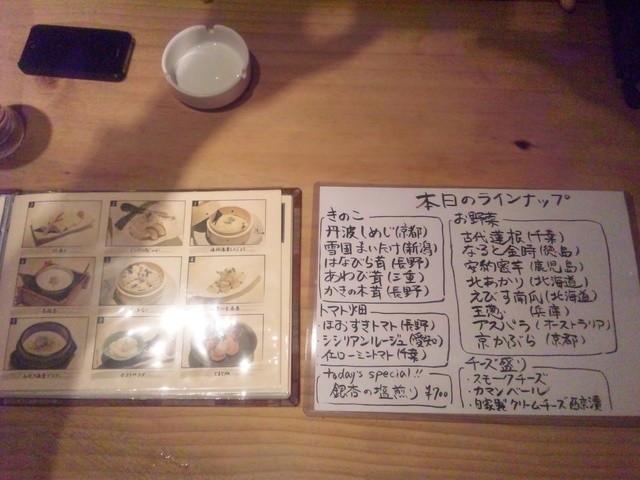 本日のラインナップ
きのこ
丹波しめじ(京都)
雪国まいたけ(新潟)
はなびら茸(長野)
あわび茸(三重)
かきの木茸(長野)
トマト畑
ほおずきトマト(長野)
シシリアンルージュ(愛知)
イエローミニトマト(千葉)
today's special!!
銀杏の塩煎り ¥700
お野菜
古代蓮根(千葉)
なると金時(徳島)
安納蜜芋(鹿児島)
北あかり(北海道)
えびす南瓜(北海道)
玉葱(兵庫)
アスパラ(オーストラリア)
京かぶら(京都)
チーズ盛り
・スモークチーズ
・カマンベール
・自家製クリームチーズ西京漬